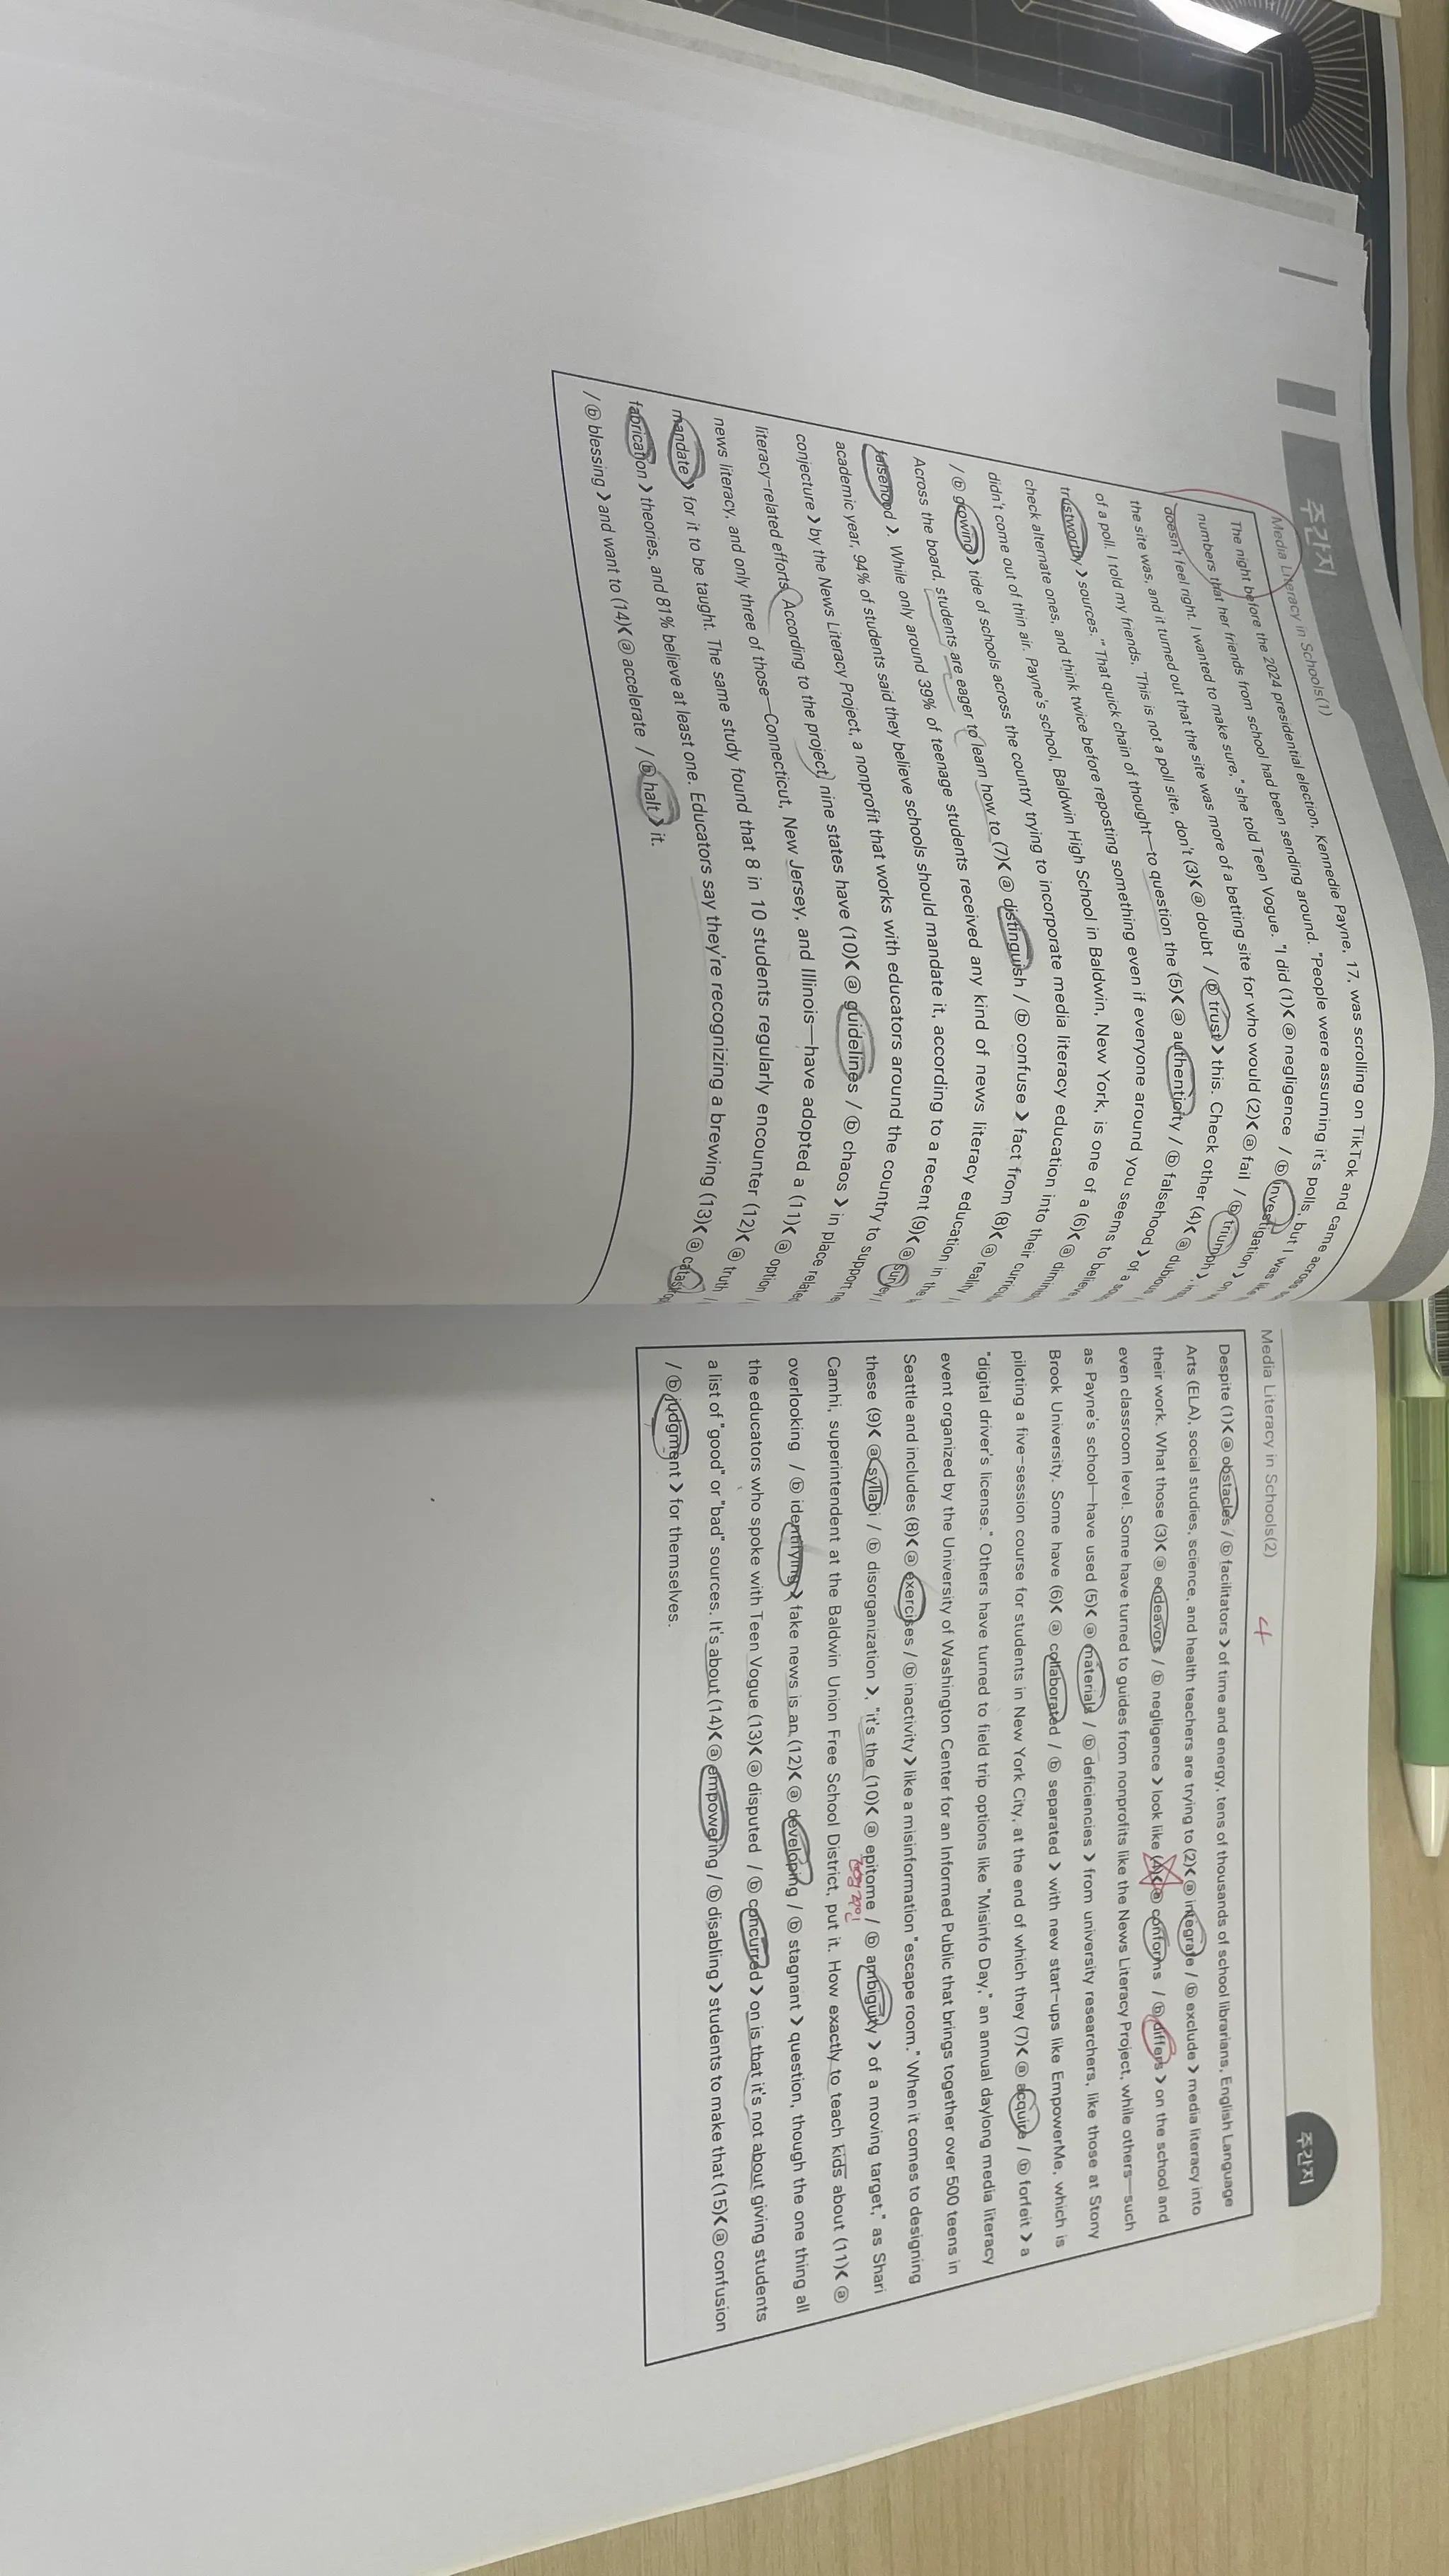 주간지
Media Literacy in Schools(1)
The night before the 2024 presidential election, Kennedie Payne, 17, was scrolling on TikTok and came across
numbers that her friends from school had been sending around. "People were assuming it's polls, but I was like
doesn't feel right. I wanted to make sure," she told Teen Vogue. "I did (1)❮ ⓐ negligence / ⓑ investigation ❯ on
the site was, and it turned out that the site was more of a betting site for who would (2)❮ ⓐ fail / ⓑ triumph ❯,
of a poll. I told my friends, 'This is not a poll site, don't (3)❮ ⓐ doubt / ⓑ trust ❯ this. Check other (4)❮ ⓐ dubious
trustworthy ❯ sources.'" That quick chain of thought—to question the (5)❮ ⓐ authenticity / ⓑ falsehood ❯ of a
check alternate ones, and think twice before reposting something even if everyone around you seems to believe
didn't come out of thin air. Payne's school, Baldwin High School in Baldwin, New York, is one of a (6)❮ ⓐ
/ ⓑ growing ❯ tide of schools across the country trying to incorporate media literacy education into their
Across the board, students are eager to learn how to (7)❮ ⓐ distinguish / ⓑ confuse ❯ fact from (8)❮ ⓐ reality /
falsehood ❯. While only around 39% of teenage students received any kind of news literacy education in the
academic year, 94% of students said they believe schools should mandate it, according to a recent (9)❮ ⓐ survey /
conjecture ❯ by the News Literacy Project, a nonprofit that works with educators around the country to support
literacy-related efforts. According to the project, nine states have (10)❮ ⓐ guidelines / ⓑ chaos ❯ in place
news literacy, and only three of those—Connecticut, New Jersey, and Illinois—have adopted a (11)❮ ⓐ option
mandate ❯ for it to be taught. The same study found that 8 in 10 students regularly encounter (12)❮ ⓐ truth
fabrication ❯ theories, and 81% believe at least one. Educators say they're recognizing a brewing (13)❮ ⓐ
/ ⓑ blessing ❯ and want to (14)❮ ⓐ accelerate / ⓑ halt ❯ it.
주간지
Media Literacy in Schools(2)
4
Despite (1)❮ ⓐ obstacles / ⓑ facilitators ❯ of time and energy, tens of thousands of school librarians, English Language
Arts (ELA), social studies, science, and health teachers are trying to (2)❮ ⓐ integrate / ⓑ exclude ❯ media literacy into
their work. What those (3)❮ ⓐ endeavors / ⓑ negligence ❯ look like (4)❮ ⓐ conforms / ⓑ differs ❯ on the school and
even classroom level. Some have turned to guides from nonprofits like the News Literacy Project, while others—such
as Payne's school—have used (5)❮ ⓐ materials / ⓑ deficiencies ❯ from university researchers, like those at Stony
Brook University. Some have (6)❮ ⓐ collaborated / ⓑ separated ❯ with new start-ups like EmpowerMe, which is
piloting a five-session course for students in New York City, at the end of which they (7)❮ ⓐ acquire / ⓑ forfeit ❯ a
"digital driver's license." Others have turned to field trip options like "Misinfo Day," an annual daylong media literacy
event organized by the University of Washington Center for an Informed Public that brings together over 500 teens in
Seattle and includes (8)❮ ⓐ exercises / ⓑ inactivity ❯ like a misinformation "escape room." When it comes to designing
these (9)❮ ⓐ syllabi / ⓑ disorganization ❯, "it's the (10)❮ ⓐ epitome / ⓑ ambiguity ❯ of a moving target," as Shari
Camhi, superintendent at the Baldwin Union Free School District, put it. How exactly to teach kids about (11)❮ ⓐ
overlooking / ⓑ identifying ❯ fake news is an (12)❮ ⓐ developing / ⓑ stagnant ❯ question, though the one thing all
the educators who spoke with Teen Vogue (13)❮ ⓐ disputed / ⓑ concurred ❯ on is that it's not about giving students
a list of "good" or "bad" sources. It's about (14)❮ ⓐ empowering / ⓑ disabling ❯ students to make that (15)❮ ⓐ confusion
/ ⓑ judgment ❯ for themselves.